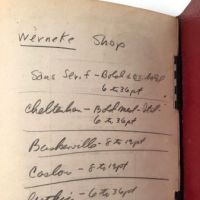 Werneke Shop
Sans Serif - Bold
6 to 36pt
Cheltenham - Bold Med - Ital -
6 to 36pt
Baskerville - 8 to 14pt
Caslon - 8 to 18pt
6 to 36pt